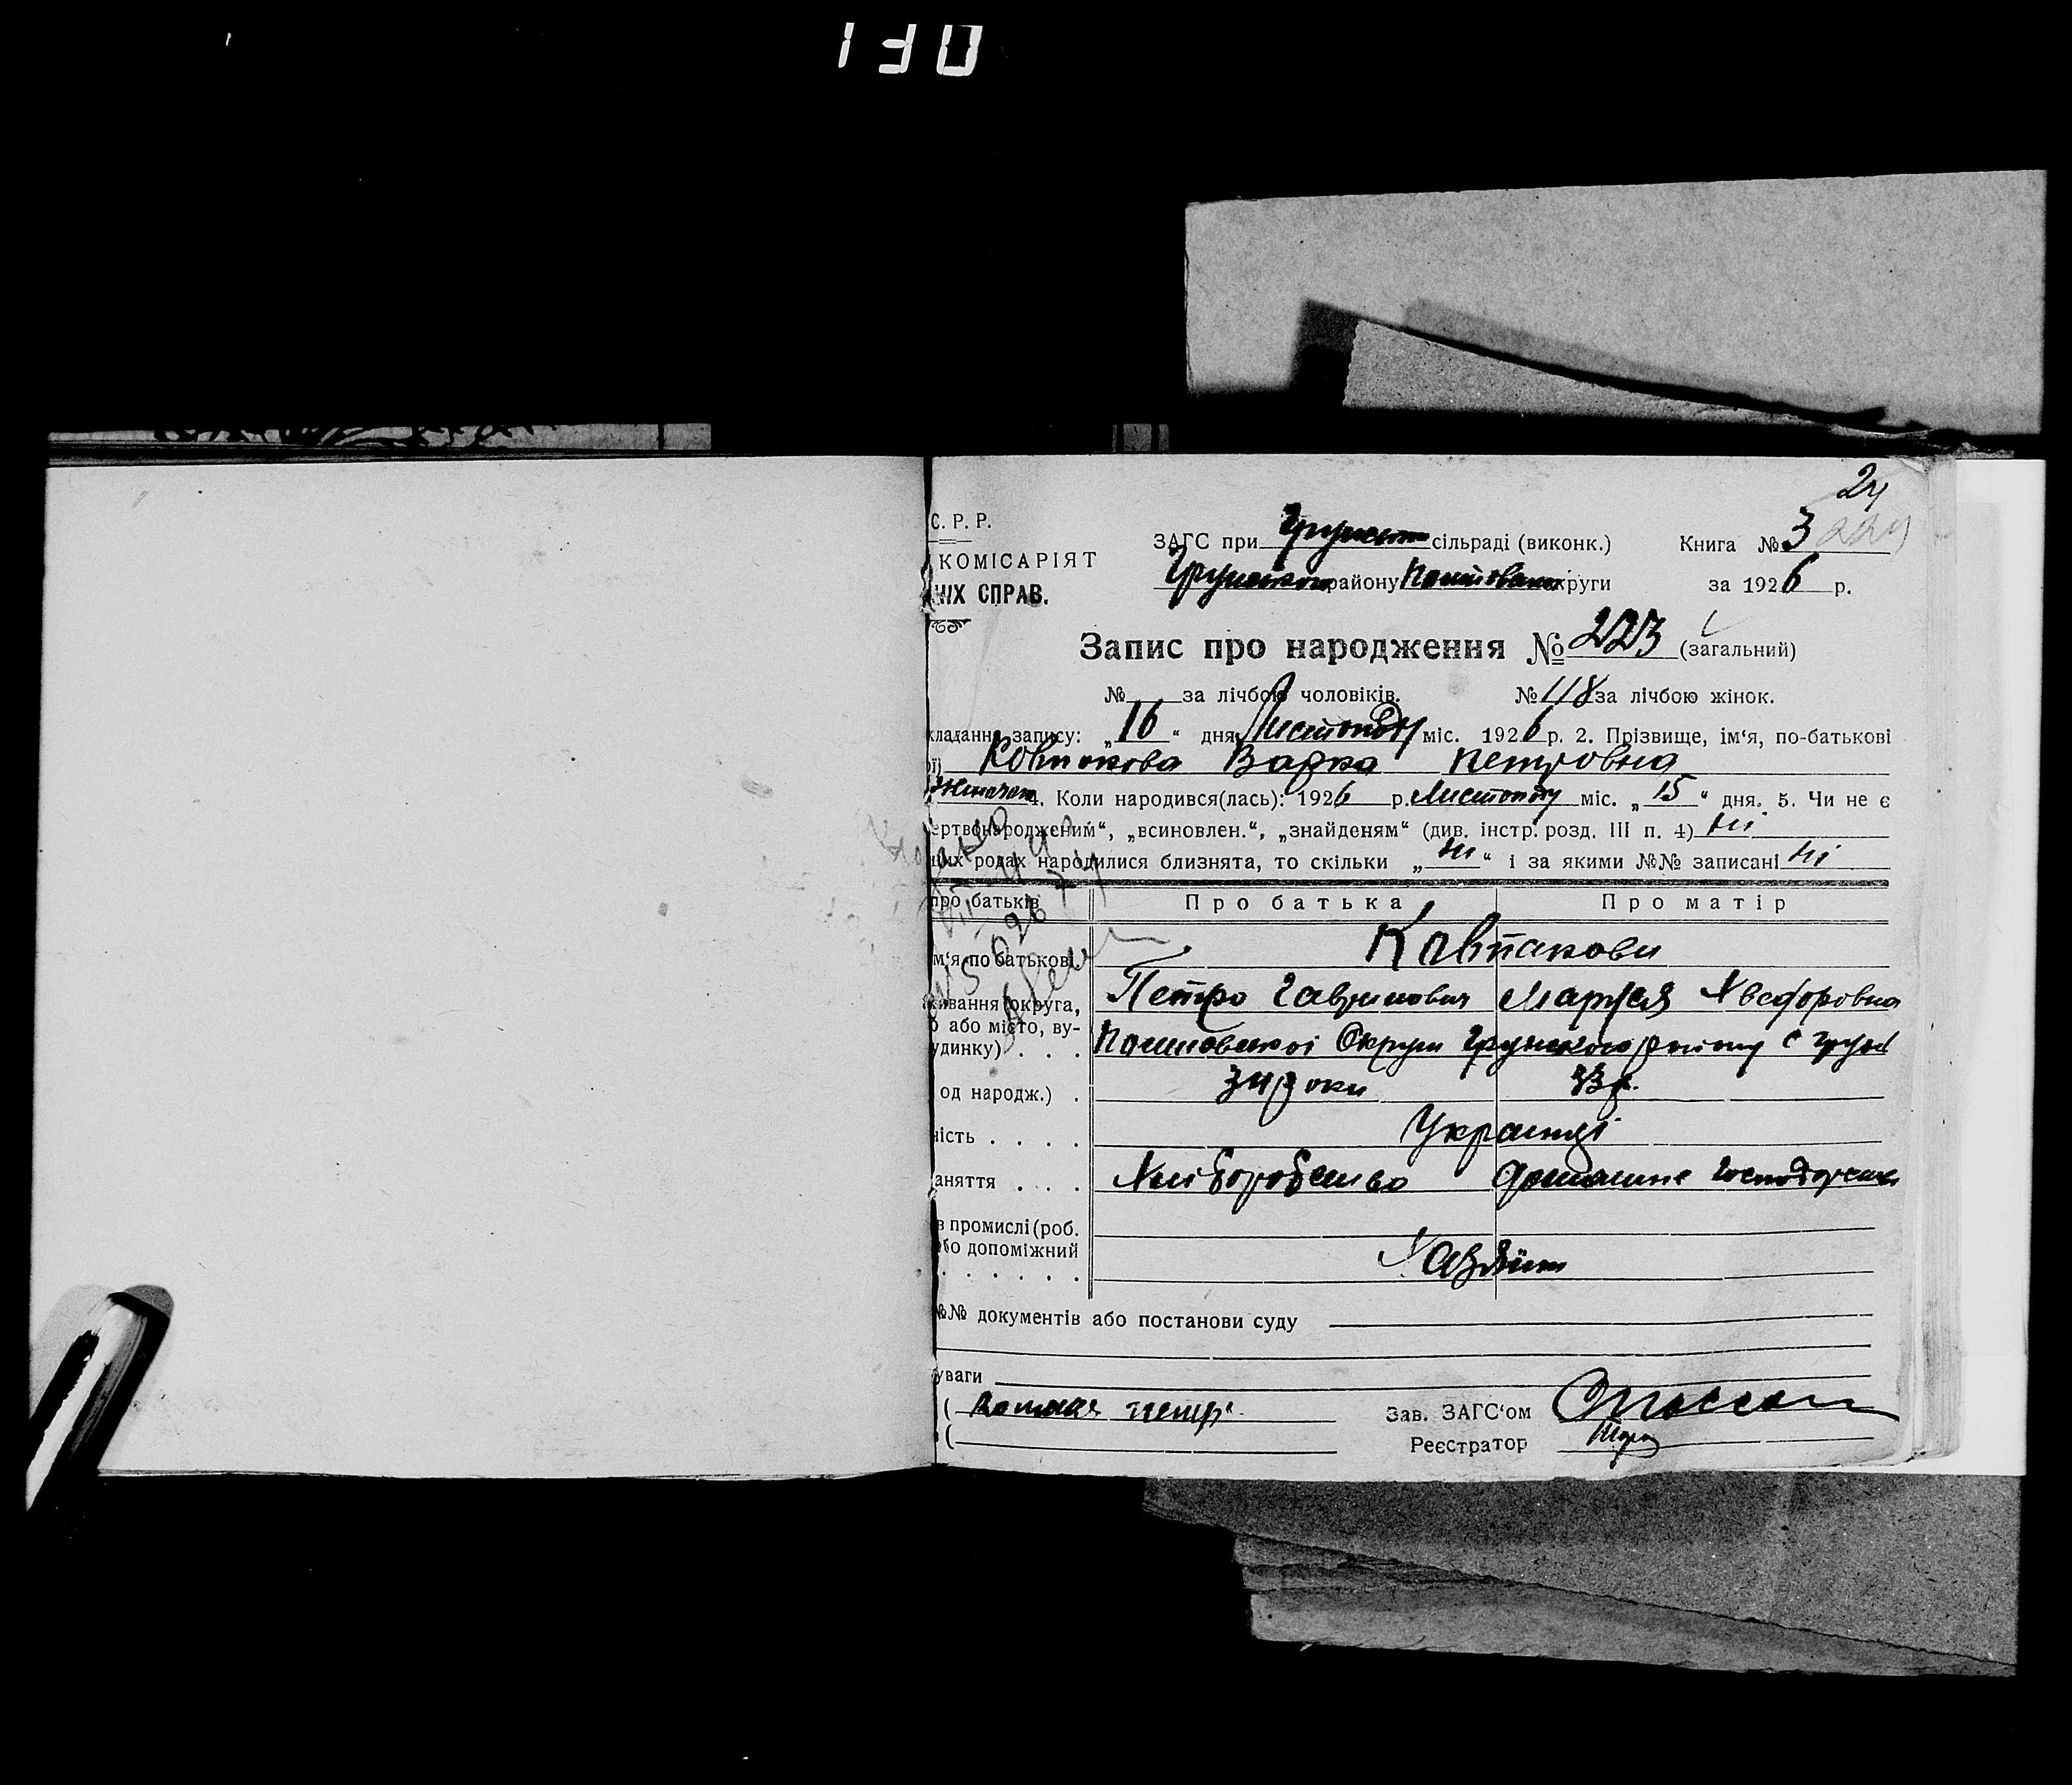 130
24
С. Р. Р.
ЗАГС при сільраді (виконк.) Книга № 3
КОМІСАРІЯТ
району округи за 1926 р.
СПРАВ.
Запис про народження № 223 (загальний)
№ за лічбою чоловіків. № 118 за лічбою жінок.
кладання запису: „16“ дня Листопаду міс. 1926 р. 2. Прізвище, ім‘я, по-батькові
Ковпакова Варка Петровна
4. Коли народився(лась): 1926 р. Листопаду міс. „15“ дня. 5. Чи не є
ертвонародженим“, „всиновлен.“, „знайденям“ (див. інстр. розд. III п. 4) Ні
родах народилися близнята, то скільки „Ні“ і за якими №№ записані Ні
про батьків Про батька Про матір
м‘я по батькові Ковпакови
Петро Гаврилович Маруся
живання (округа,
або місто, ву-
удинку) . . . Округи Грунського району с Грунь
од народж.) . 34 роки 33 р.
ність . . . . Українці
аняття . . . Хліборобство Домашне
в промислі (роб.
бо допоміжний
. . . . . . Хазяїни
№№ документів або постанови суду
уваги
( Зав. ЗАГС‘ом
( Реєстратор